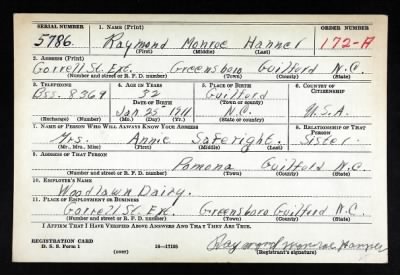 SERIAL NUMBER 1. NAME (Print) ORDER NUMBER
5786. Raymond Monroe Hanner 172-A
(First) (Middle) (Last)
2. ADDRESS (Print)
Gorrell St. Ext. Greensboro Guilford N.C.
(Number and street or R. F. D. number) (Town) (County) (State)
3. TELEPHONE 4. AGE IN YEARS 5. PLACE OF BIRTH 6. COUNTRY OF CITIZENSHIP
32 Guilford
8369 DATE OF BIRTH (Town or county)
Jan 25 1911 N.C. U.S.A.
(Exchange) (Number) (Mo.) (Day) (Yr.) (State or country)
7. NAME OF PERSON WHO WILL ALWAYS KNOW YOUR ADDRESS 8. RELATIONSHIP OF THAT PERSON
Mrs. Annie Saferight. Sister.
(Mr., Mrs., Miss) (First) (Middle) (Last)
9. ADDRESS OF THAT PERSON
Pomona Guilford N.C.
(Number and street or R. F. D. number) (Town) (County) (State)
10. EMPLOYER'S NAME
Woodlawn Dairy.
11. PLACE OF EMPLOYMENT OR BUSINESS
Gorrell St. Ext. Greensboro Guilford N.C.
(Number and street or R. F. D. number) (Town) (County) (State)
I AFFIRM THAT I HAVE VERIFIED ABOVE ANSWERS AND THAT THEY ARE TRUE.
REGISTRATION CARD Raymond Monroe Hanner
D. S. S. Form 1 16—17105
(over) (Registrant's signature)